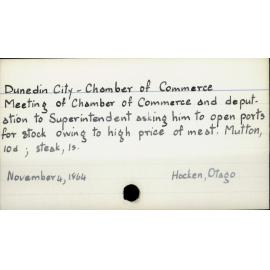 Dunedin City - Chamber of Commerce
Meeting of Chamber of Commerce and deput-
ation to Superintendent asking him to open ports
for stock owing to high price of meat. Mutton,
10d ; steak, 1s.
November 4, 1964
Hocken, Otago